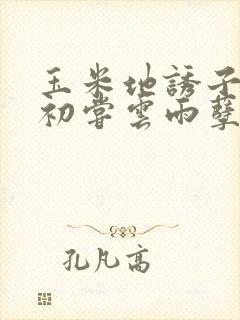 玉米地誘子
初嘗雲雨孽
孔凡高